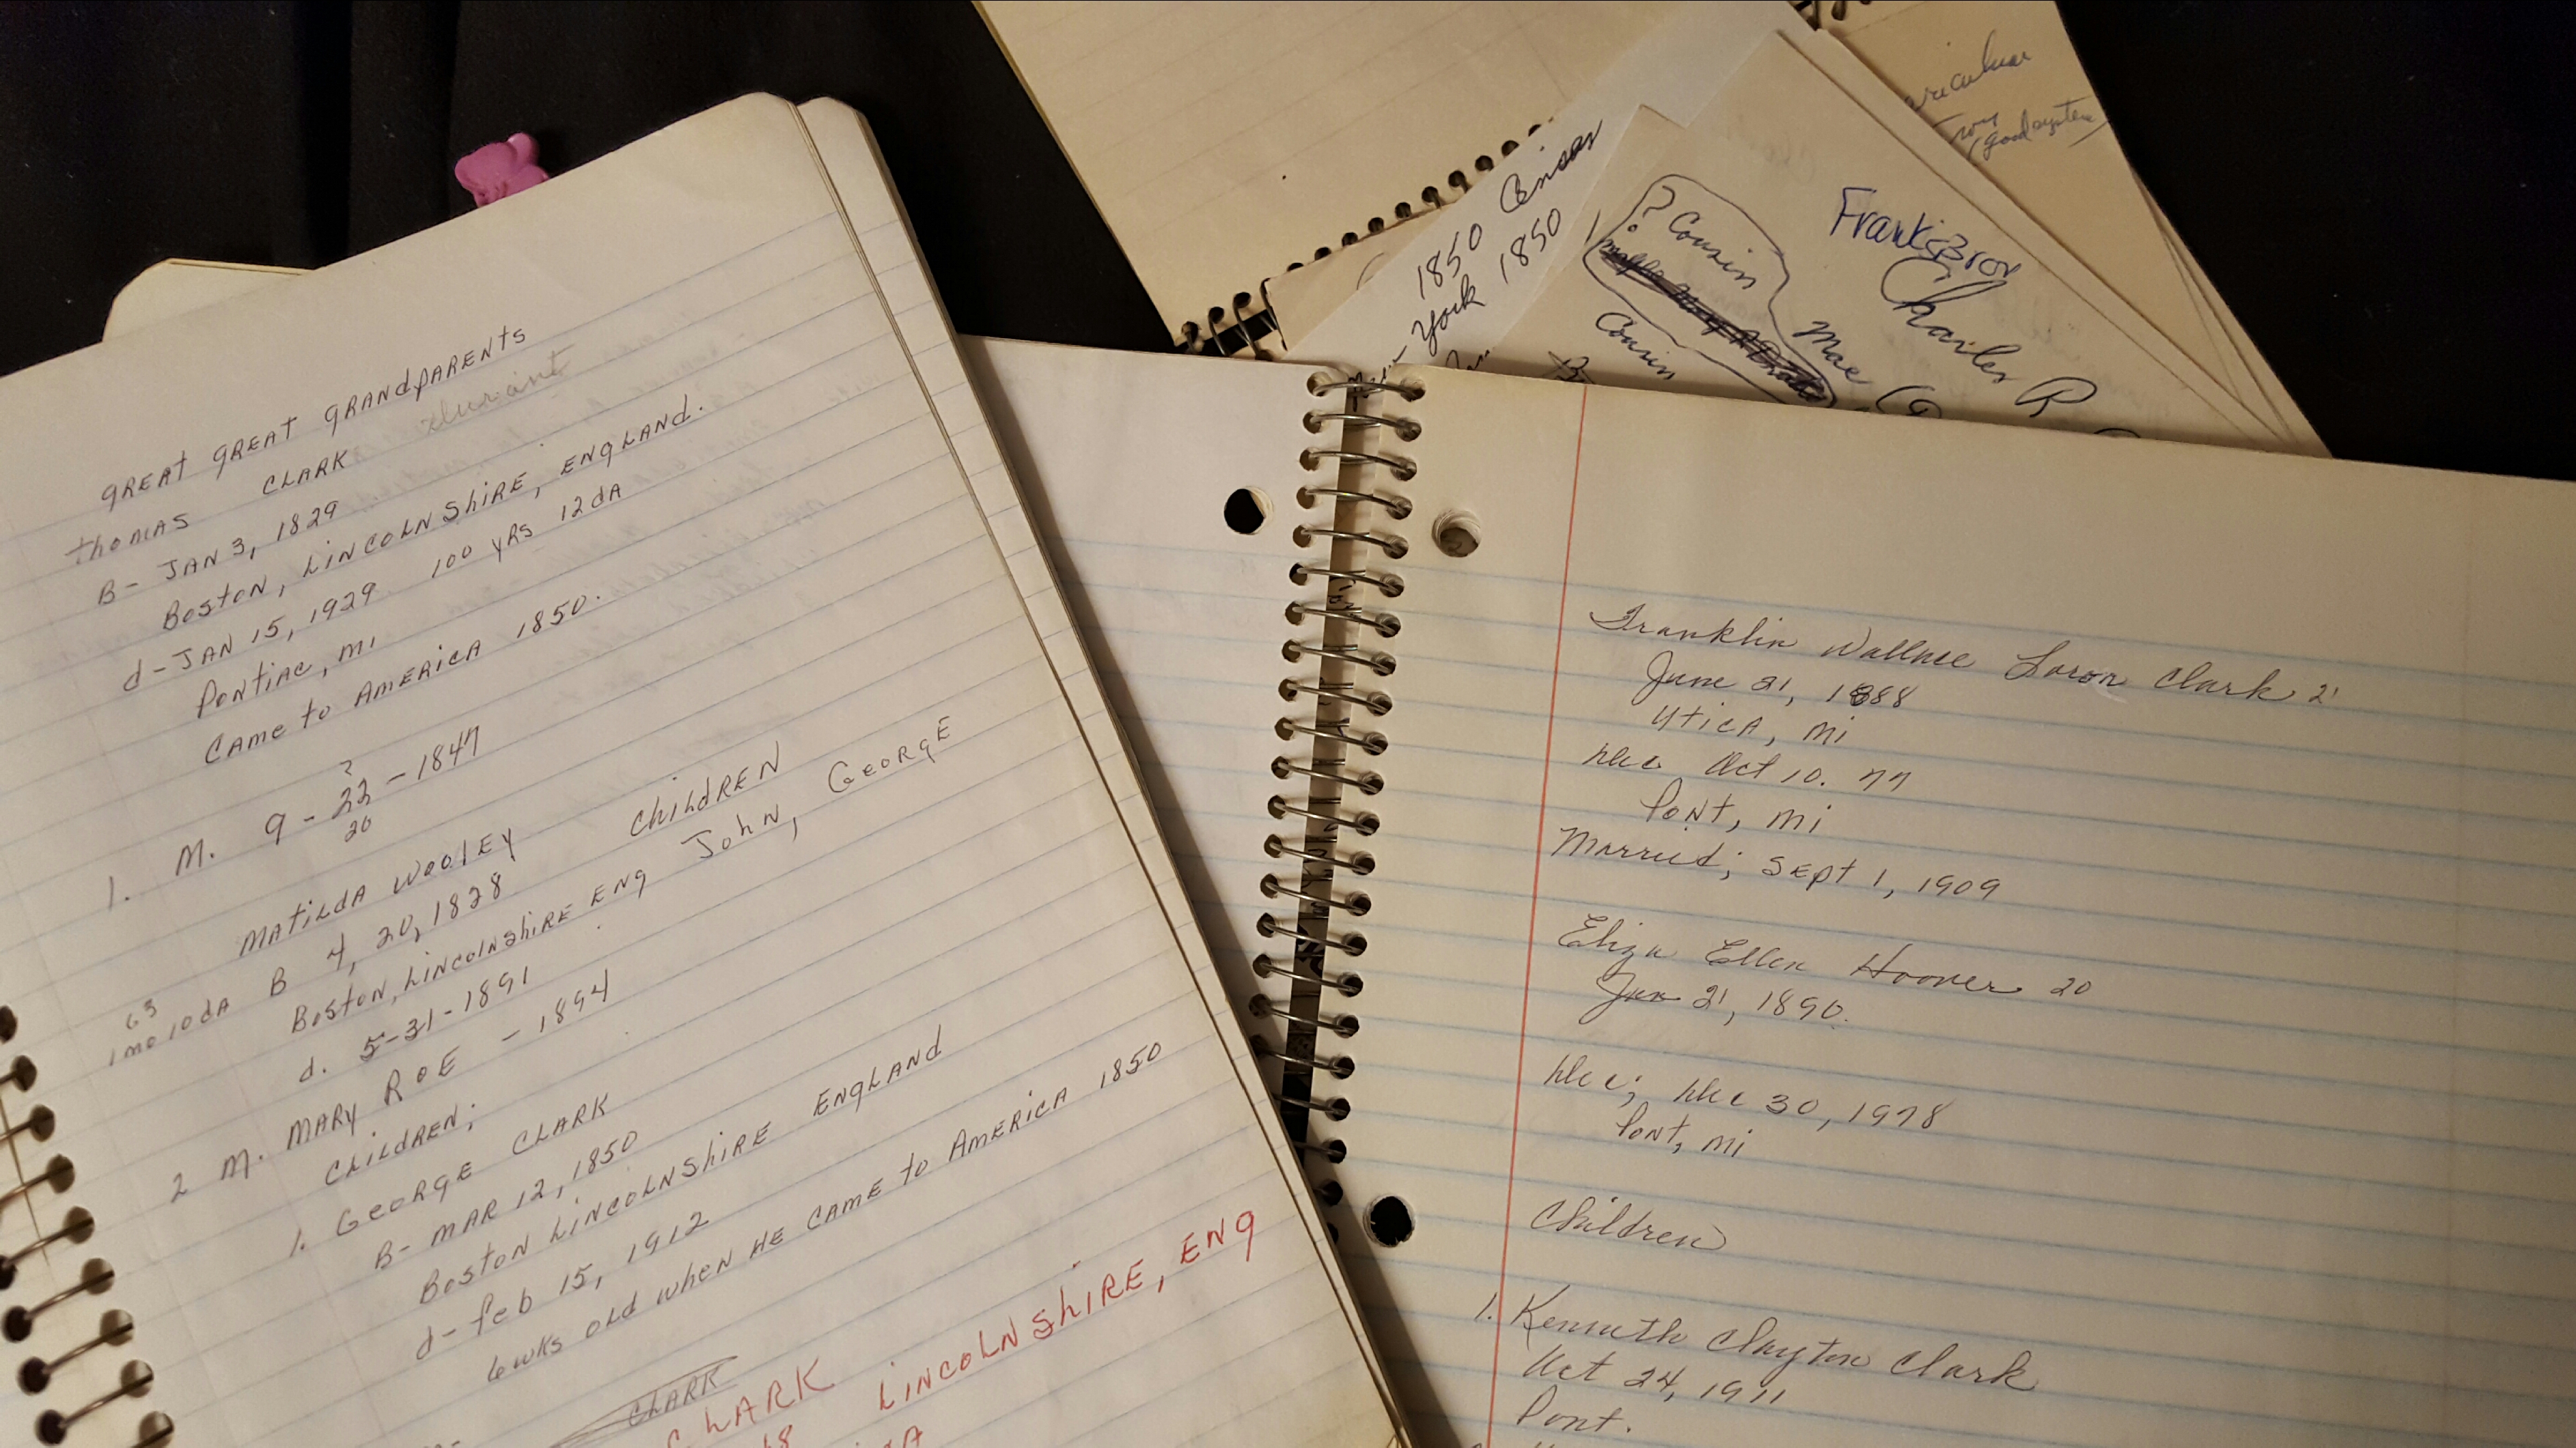 GREAT GREAT GRANDPARENTS
THOMAS CLARK
B- JAN 3, 1829
BOSTON, LINCOLNSHIRE, ENGLAND.
d- JAN 15, 1929 100 YRS 12 dA
PONTIAC, MI
CAME to AMERICA 1850.
?
1. M. 9 - 22 - 1847
20
MATILDA WOOLEY CHILDREN
63 B 4, 20, 1828 JOHN, GEORGE
1 mo 10 dA BOSTON, LINCOLNSHIRE ENG
d. 5-31-1891
2 M. MARY ROE - 1894
CHILDREN;
1. GEORGE CLARK
B- MAR 12, 1850
BOSTON LINCOLNSHIRE ENGLAND
d- feb 15, 1912
6 wks OLD WHEN HE CAME to AMERICA 1850
CLARK
CLARK
LINCOLNSHIRE, ENG
1850 Census
York 1850
? Cousin
Cousin
Mae
Frank
Charles R
(good system)
Franklin Wallace Loron Clark 21
June 21, 1888
Utica, Mi
Dec Oct 10. 77
Pont, Mi
Married; Sept 1, 1909
Eliza Ellen Hoover 20
Jan 21, 1890.
Dec; Dec 30, 1978
Pont, Mi
Children
1. Kenneth Clayton Clark
Oct 24, 1911
Pont.